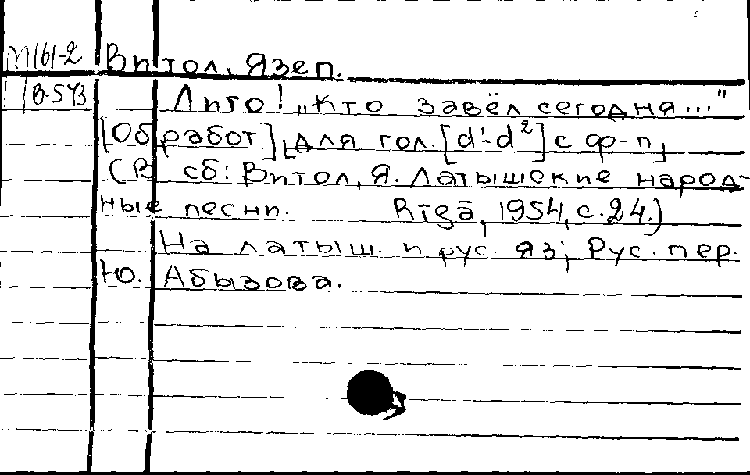 М161-2 Витол, Язеп.
В-573 Лиго! „Кто завёл сегодня..."
[Обработ] для гол. [d¹-d²] с ф-п,
(В сб: Витол, Я. Латышские народ-
ные песни. Rīgā, 1954, с. 24.)
На латыш. и рус. яз; Рус. пер.
Ю. Абызова.